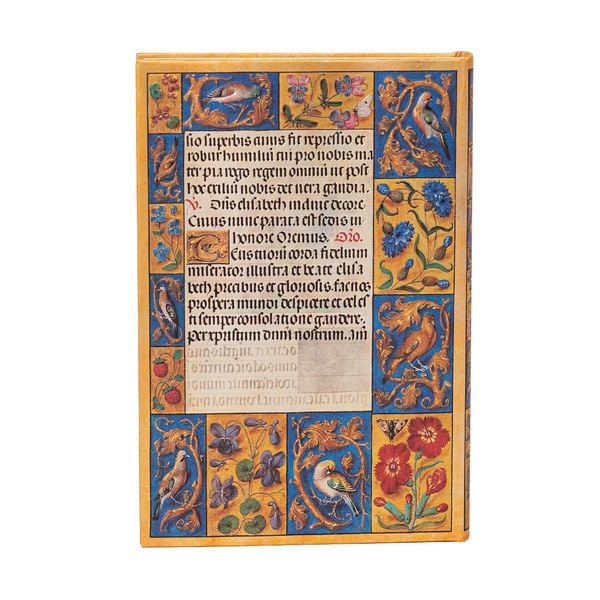 sio superbis animis fit repressio et
robur humiliū tui pro nobis ma
ter pia rogo regem omniū ut post
hoc exiliū nobis det vera gaudia.
V. Dn̄s elisabeth induit decore.
Cuius nunc parata est sedis in
honore Oremus. Oro.
Tuorū corda fidelium
miserator illustra et beate elisa
beth precibus et gloriosis. fac nos
prospera mundi despicere et celes
ti semper consolatione gaudere.
per xpistum dn̄m nostrum. am̄